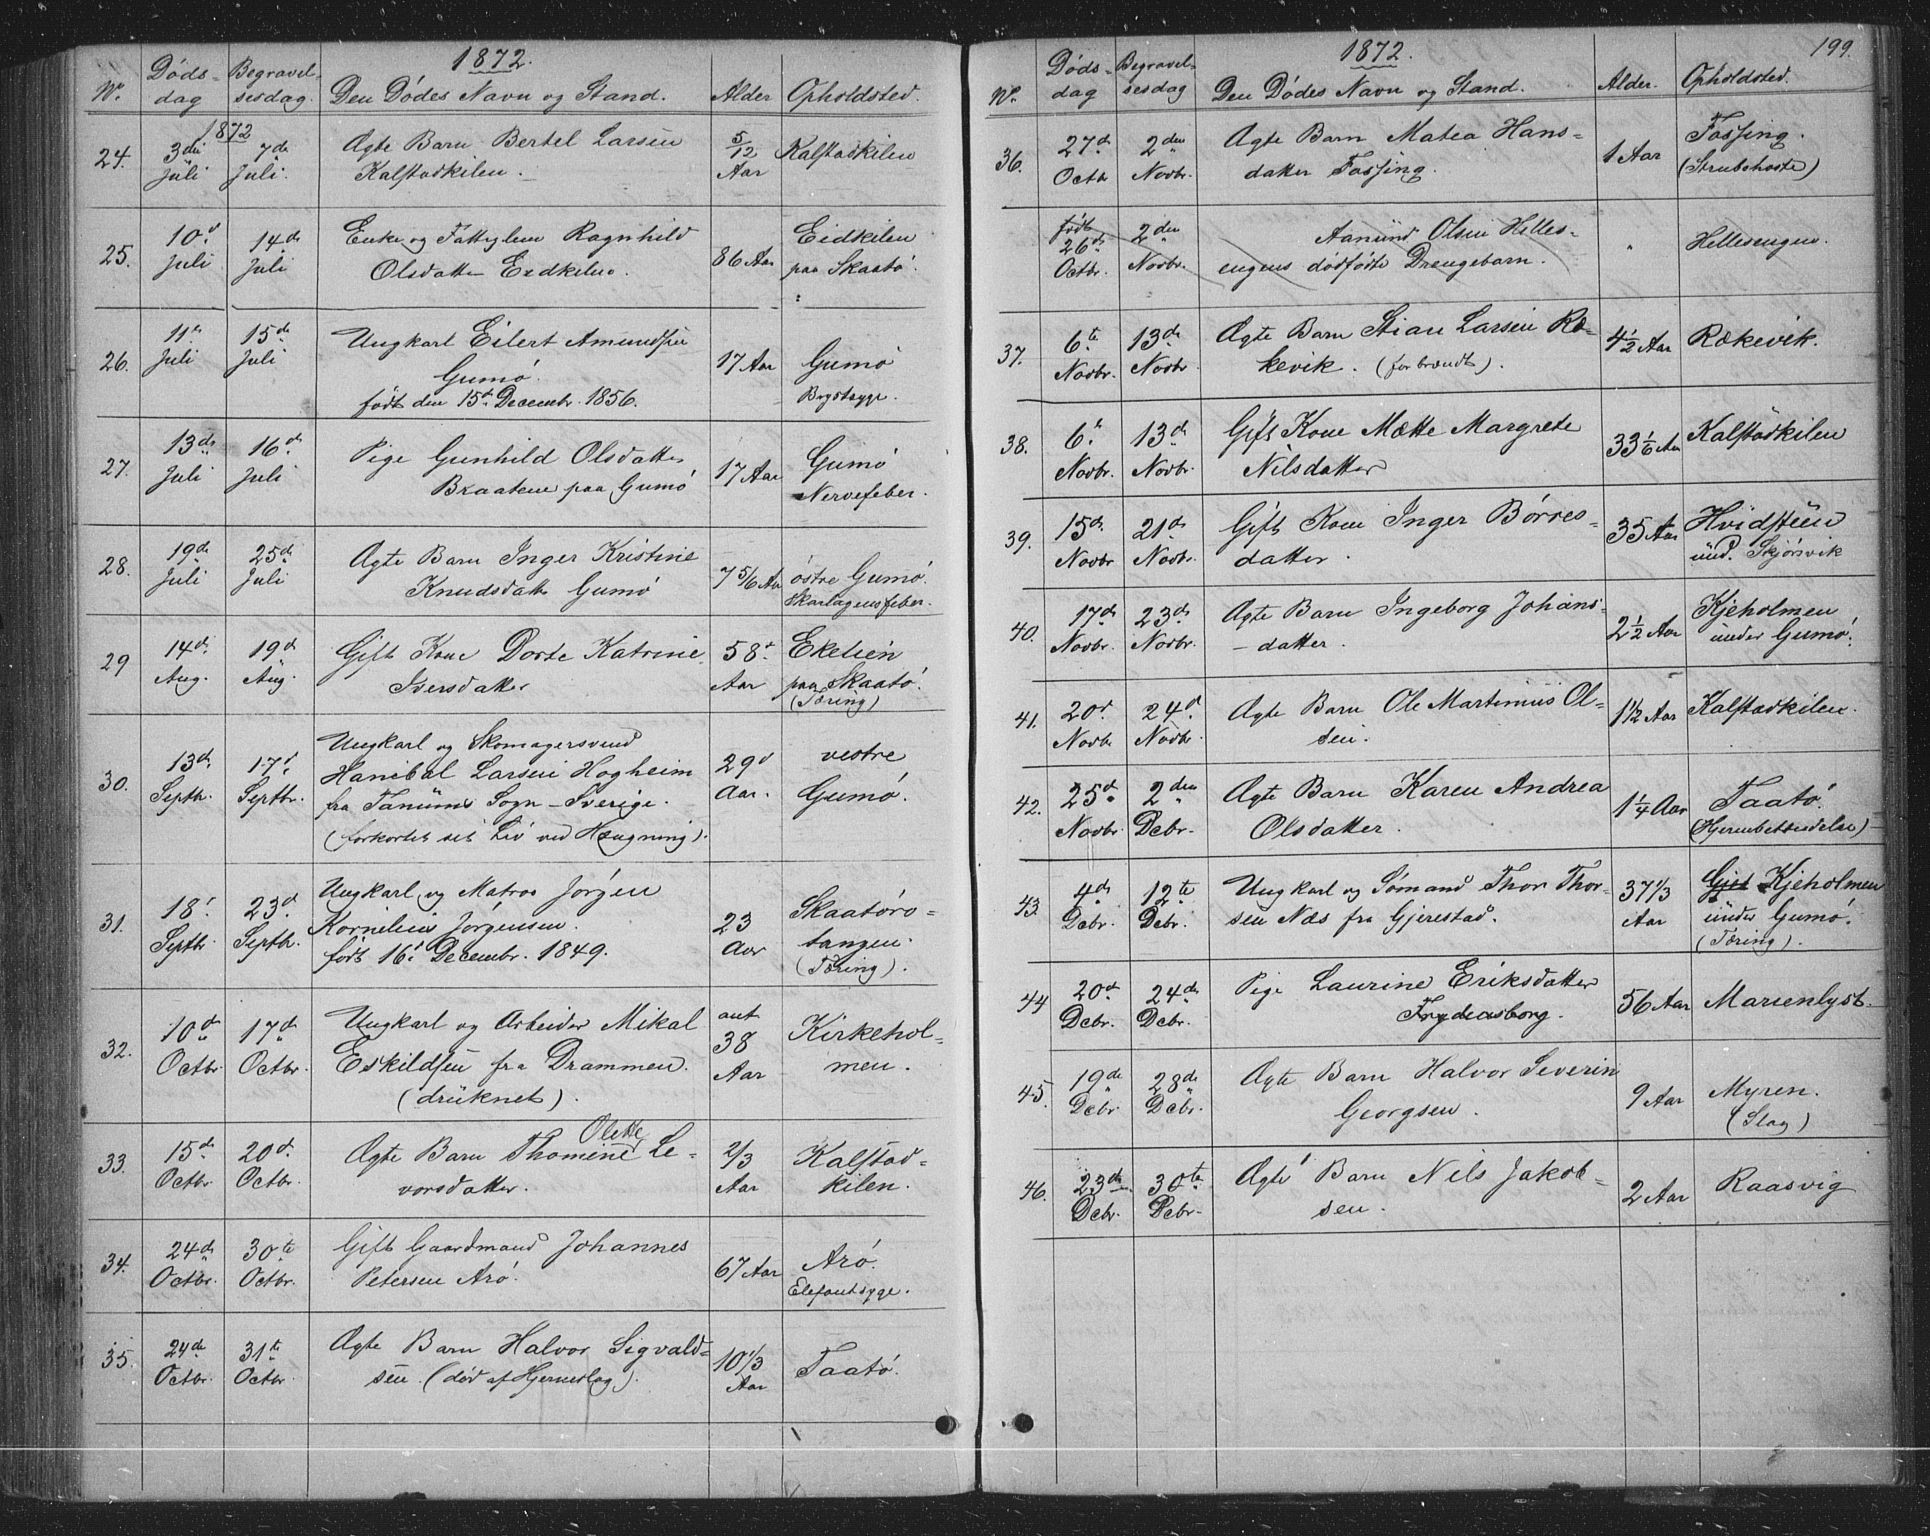 1872.
No. Døds-dag Begravel-sesdag. Den Dødes Navn og Stand. Alder Opholdsted.
1872
24. 3die Juli 7de Juli. Ægte Barn Bertel Larsen 5/12 Aar Kalstadkilen
Kalstadkilen.
25. 10d Juli 14de Juli Enke og Fattiglem Ragnhild 86 Aar Eidkilen
Olsdatter Eidkilen. paa Skaatø.
26. 11te Juli 15de Juli Ungkarl Eilert Amundsen 17 Aar Gumø
Gumø. Brystsyge.
født den 15de Decembr. 1856.
27. 13de Juli 16de Juli Pige Gunhild Olsdatter 17 Aar Gumø
Braaten paa Gumø Nervefeber.
28. 19de Juli 25de Juli Ægte Barn Inger Kristine 7 5/6 Aar østre Gumø.
Knudsdatt Gumø Skarlagensfeber.
29 14de Aug. 19d Aug. Gift Kone Dorte Katrine 58 Aar Ekelien
Iversdatter paa Skaatø.
(Tæring)
30. 13de Septbr. 17d Septbr. Ungkarl og Skomagersvend 29 Aar. vestre
Hanibal Larsen Hogheim Gumø.
fra Tanums Sogn - Sverige.
(forkortet sit Liv ved Hængning).
31. 18d Septbr 23d Septbr. Ungkarl og Matros Jørgen 23 Aar Skaatørø-
Kornelius Jørgensen. tangen.
født 16d Decembr. 1849. (Tæring).
32. 10d Octbr 17de Octbr. Ungkarl og Arbeider Mikal ant 38 Aar Kirkehol-
Eskildsen fra Drammen. men.
(druknet).
33. 15de Octbr 20d Octbr. Ægte Barn Thomine Olette Le- 2/3 Aar Kalstad-
vorsdatter. kilen.
34. 24de Octbr. 30te Octbr. Gift Gaardmand Johannes 67 Aar Arø.
Petersen Arø. Elefantsyge.
35. 24de Octbr. 31te Octbr. Ægte Barn Halvor Sigvald- 10 1/3 Aar Taatø.
sen. (død af Hjerneslag).
1872. 199.
No. Døds-dag Begravel-sesdag Den Dødes Navn og Stand. Alder. Opholdsted.
36. 27d Octbr 2den Novbr. Ægte Barn Matea Hans- 1 Aar Fossing.
datter Fossing. (Strubehoste)
født 26de Octbr. 2den Novbr. Aanund Olsen Helles- " Hellesengen.
engens dødfødte Drengebarn.
37. 6te Novbr. 13de Novbr. Ægte Barn Stian Larsen Ræ- 4 1/2 Aar Rækevik.
kevik. (forbrændt).
38. 6te Novbr. 13de Novbr. Gift Kone Mætte Margrete 33 1/6 Aar Kalstadkilen
Nilsdatter
39. 15de Novbr 21de Novbr. Gift Kone Inger Børres- 35 Aar Hvidsteen
datter. und. Skjørsvik
40. 17de Novbr. 23de Novbr. Ægte Barn Ingeborg Johans- 2 1/2 Aar Kjeholmen
- datter. under Gumø.
41. 20d Novbr 24d Novbr Ægte Barn Ole Martinius Ol- 1 1/2 Aar Kalstadkilen.
sen.
42. 25d Novbr. 2den Debr. Ægte Barn Karen Andrea 1 1/4 Aar Taatø.
Olsdatter. (Hjernebetændelse)
43 4de Debr. 12te Debr. Ungkarl og Sømand Thor Thor- 37 1/3 Aar Gjest Kjeholmen
sen Næs fra Gjerestad. under Gumø.
(Tæring).
44 20d Debr. 24de Debr. Pige Laurine Eriksdatter 56 Aar Marienlyst.
Frydensborg.
45. 19de Debr. 28de Debr. Ægte Barn Halvor Severin 9 Aar Myren.
Georgsen. (Slag)
46. 23de Debr. 30te Debr. Ægte Barn Nils Jakob- 2 Aar Raasvig
sen.